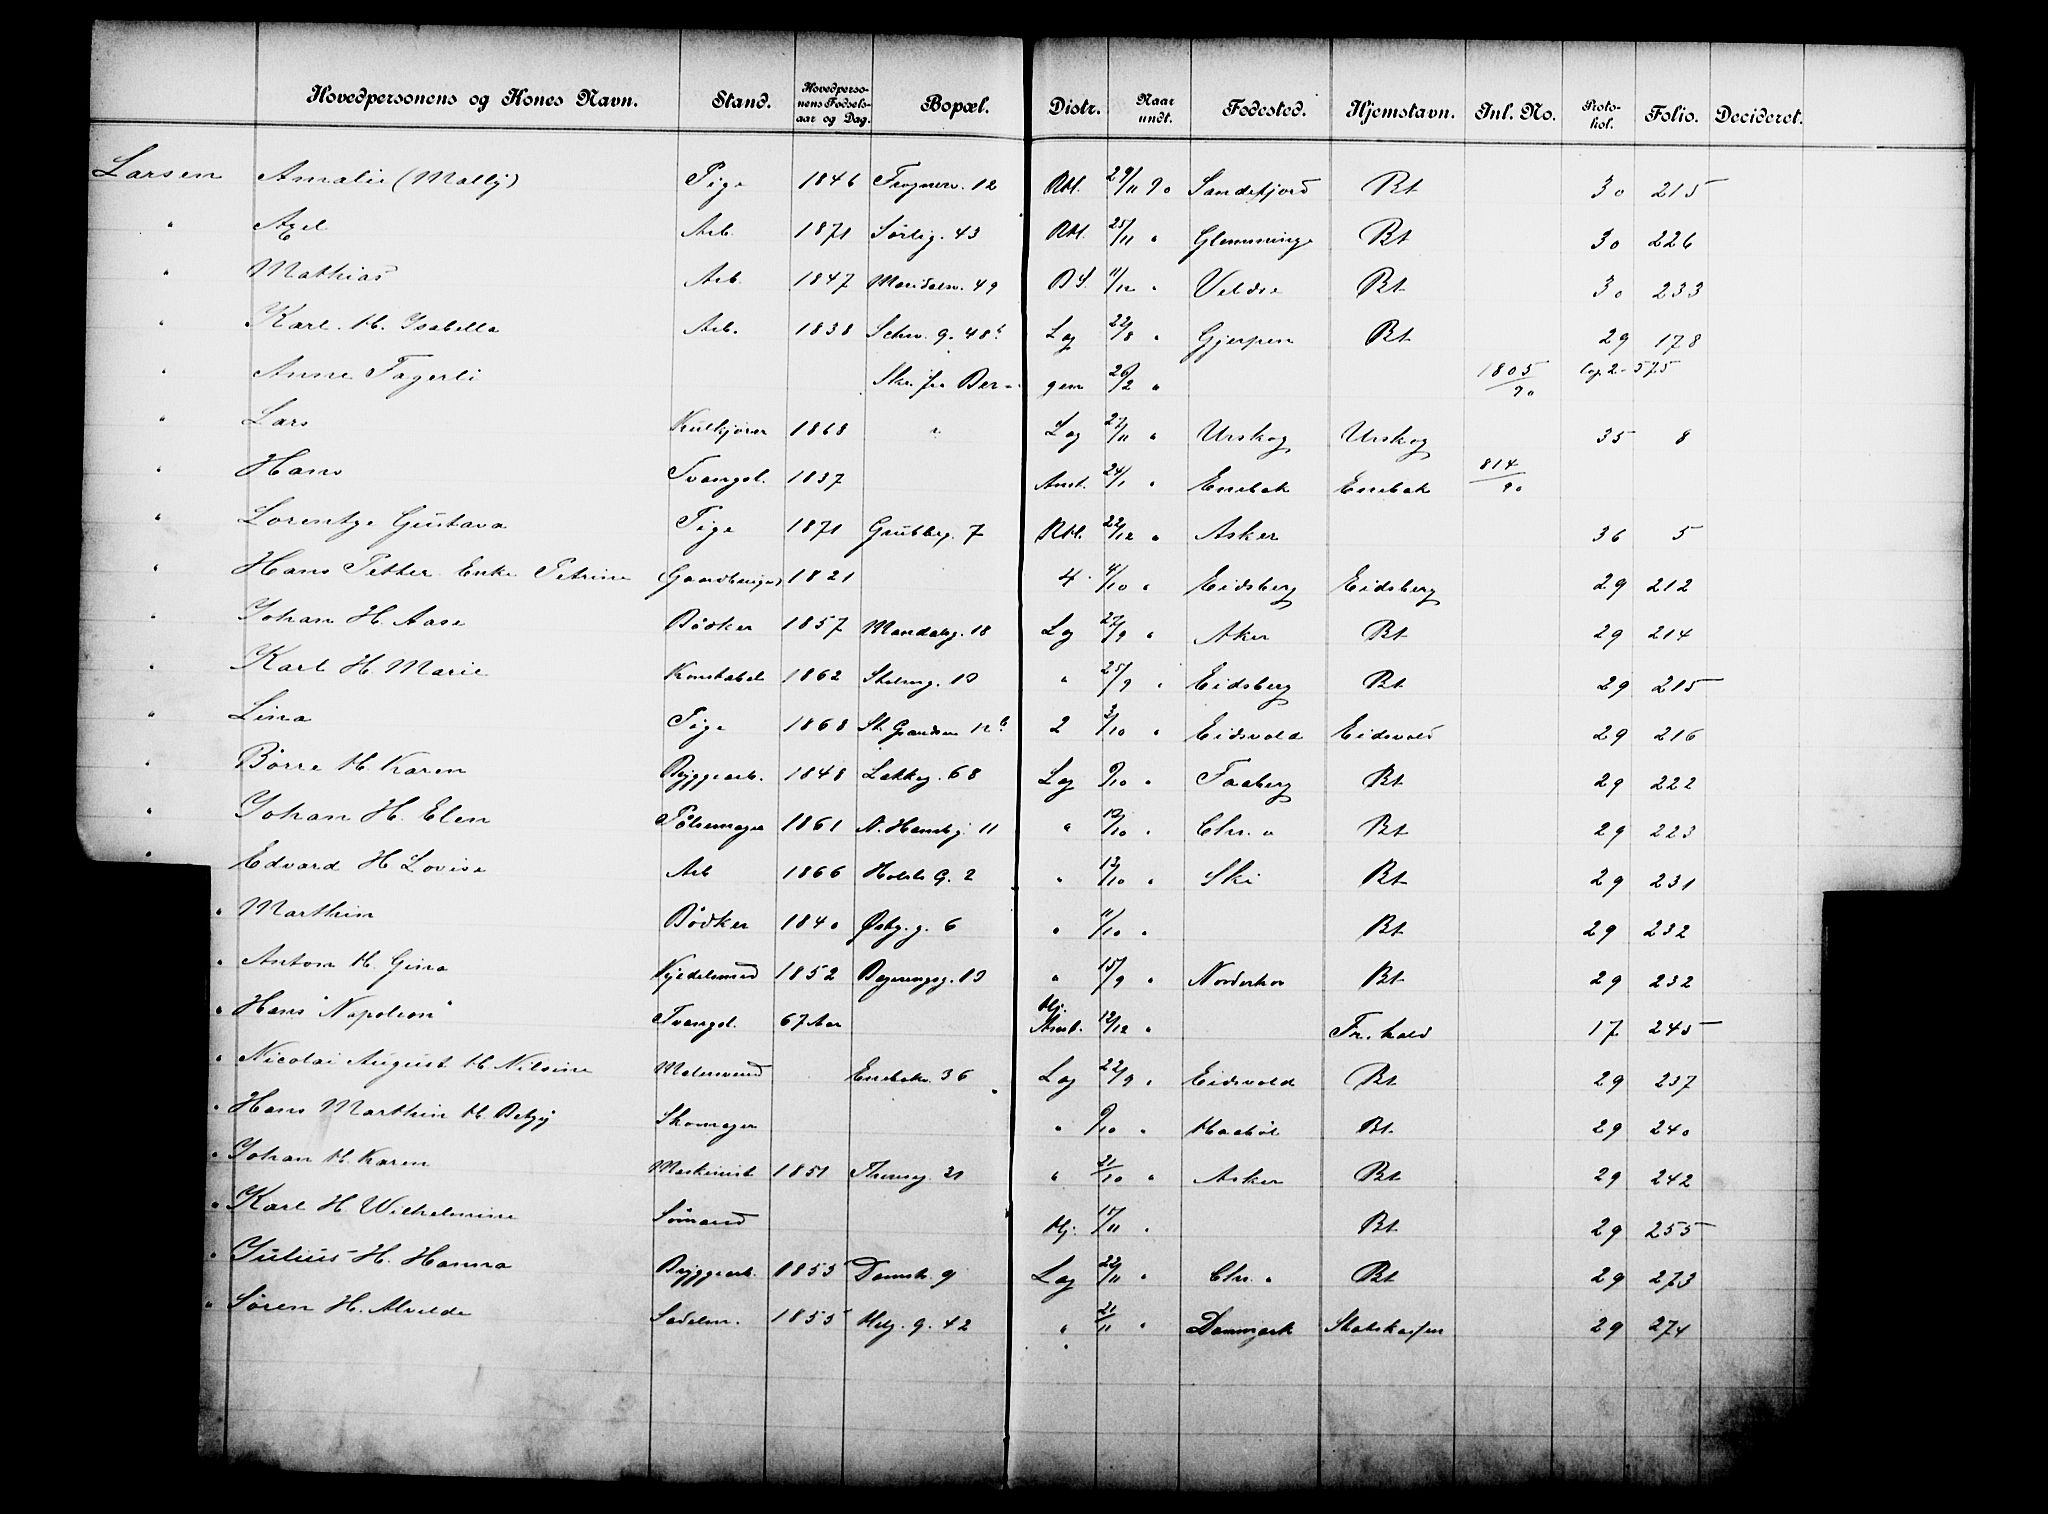 Hovedpersonens og Kones Navn. Stand. Hovedpersonens Fødselsaar og Dag. Bopæl. Distr. Naar undt. Fødested. Hjemstavn. Inl. No. Protokol. Folio. Decideret.
Larsen Amalie (Mally) Pige 1846 Frognerv. 12 Rkl. 29/11 90 Sandefjord Bt 30 215
" Axel Arb. 1871 Sörlig. 43 Rkl. 25/11 " Glemminge Bt 30 226
" Mathias Arb. 1847 Maridalsv. 49 BS. 11/12 " Veldre Bt 30 233
" Karl H. Isabella Arb. 1838 Schw. g. 48b Lag 22/8 " Gjerpen Bt 29 178
" Anne Fagerli Skr. fra Ber- gen 26/2 " 1805/90 Cop. 2-575
" Lars Kulkjörer 1868 " Lag 27/11 " Urskog Urskog 35 8
" Hans Tvangsl. 1837 Anst. 24/1 " Enebak Enebak 814/90
" Lorentze Gustava Pige 1871 Grubbeg. 7 Rkl. 22/12 " Asker 36 5
" Hans Petter Enke Petrine (Gaardbruger) 1821 4 4/10 " Eidsberg Eidsberg 29 212
" Johan H. Aase Bödker 1857 Mandalsg. 18 Lag 27/9 " Aker Bt 29 214
" Karl H. Marie Konstabel 1862 " 25/9 " Eidsberg Bt 29 215
" Lina Pige 1868 St. Grandsen 12b 2 2/10 " Eidsvold Eidsvold 29 216
" Börre H. Karen Byggearb. 1848 Lakkeg. 68 Lag 9/10 " Faaberg Bt 29 222
" Johan H. Elen Pölsemager 1861 N. Hammbg. 11 " 12/10 " Chr. a Bt 29 223
" Edvard H. Lovise Arb 1866 Holsts G. 2 " 13/10 " Ski Bt 29 231
" Marthin Bödker 1840 Østby. g. 6 " 11/10 " Bt 29 232
" Anton H. Gina Kjedelsmed 1852 " 15/9 " Norderhov Bt 29 232
" Hans "Napoleon" Tvangsl. 67 Aar Hj. Anst. 12/12 " Fr. hald 17 245
" Nicolai August H. Nilsine Malersvend Enebakv. 36 Lag 22/9 " Eidsvold Bt 29 237
" Hans Marthin H. Betzy Skomager " 9/10 " Haaböl Bt. 29 240
" Johan H. Karen Maskinist 1851 Thereseg 21 " 21/10 " Asker Bt 29 242
" Karl H. Wilhelmine Sömand Hj. 17/11 " Bt 29 255
" Julius H. Hanna Byggearb. 1855 Damstr. 9 Lag 22/11 " Chr. a Bt 29 273
" Sören H. Alvilde Sadelm. 1855 Helg. g. 42 " 21/11 " Danmark Statskassen 29 274